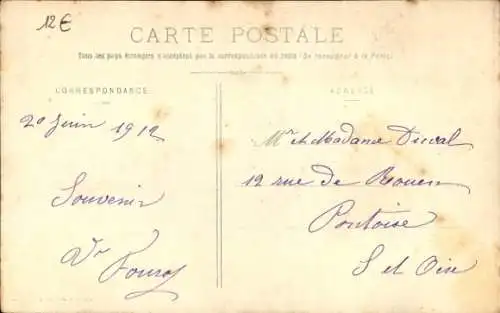 12€
CARTE POSTALE
Tous les pays étrangers n'acceptent pas la correspondance au recto (Se renseigner à la Poste)
CORRESPONDANCE
ADRESSE
20 Juin 1912
Souvenir
Mr et Madame Duval
12 rue de Rouen
Pontoise
S et Oise